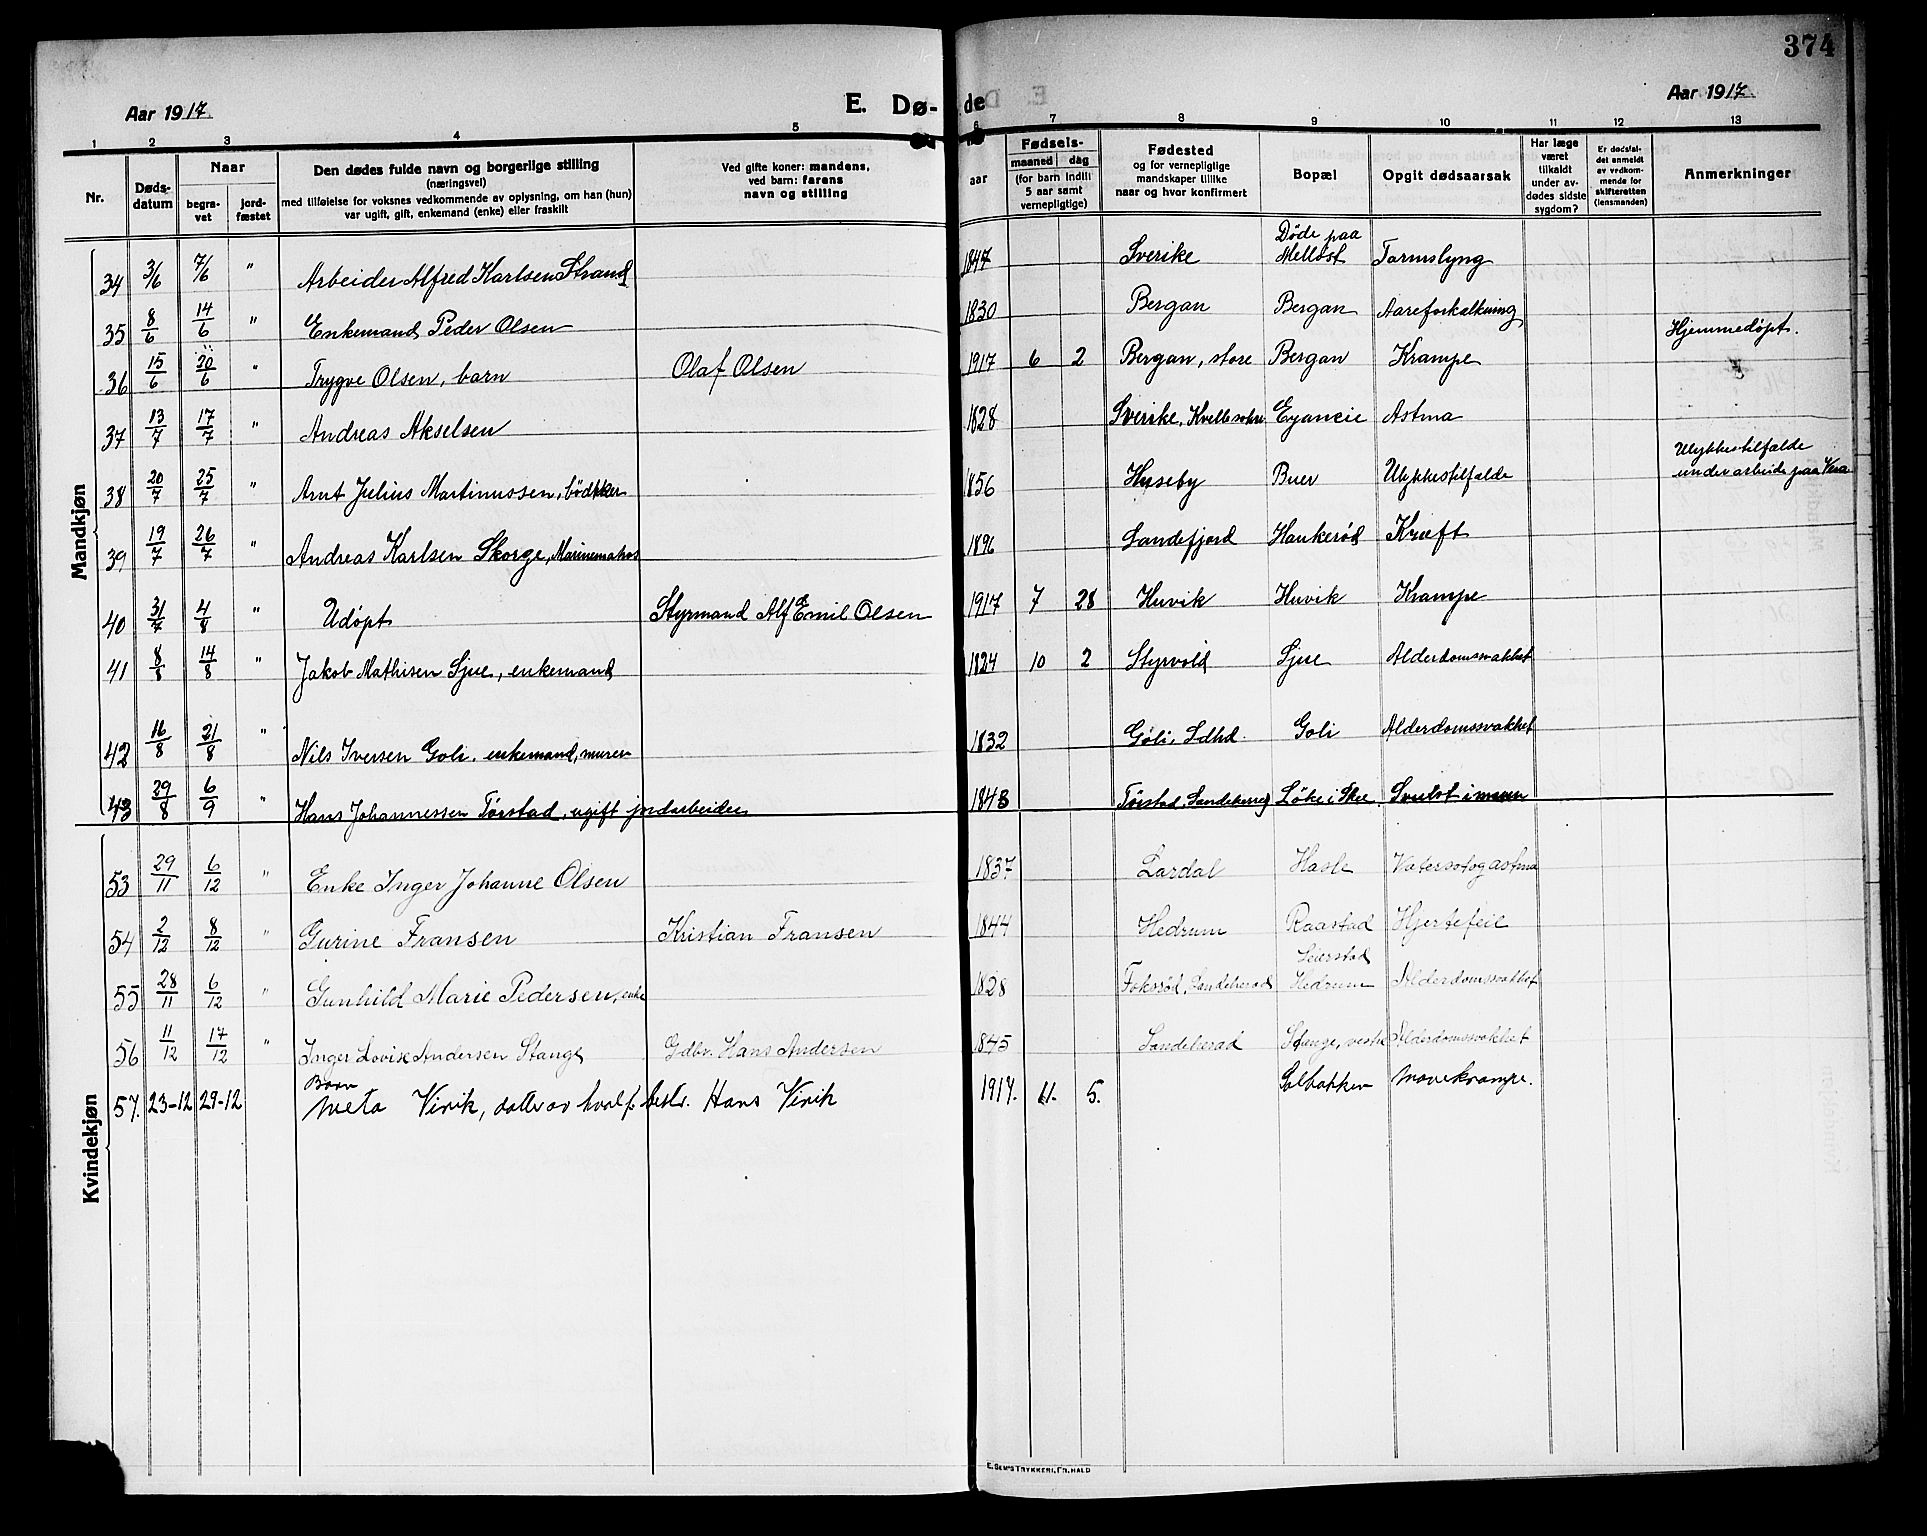 374
Aar 1917.
E. Dø- de
Aar 1917.
1 2 3 4 5 6 7 8 9 10 11 12 13
Nr. Døds-datum Naar begra-vet jord-fæstet
Den dødes fulde navn og borgerlige stilling
(næringsvei)
med tilføielse for voksnes vedkommende av oplysning, om han (hun)
var ugift, gift, enkemand (enke) eller fraskilt
Ved gifte koner: mandens,
ved barn: farens
navn og stilling
aar
Fødsels-
maaned dag
(for barn indtil
5 aar samt
vernepligtige)
Fødested
og for vernepligtige
mandskaper tillike
naar og hvor konfirmert
Bopæl
Opgit dødsaarsak
Har læge
været
tilkaldt
under av-
dødes sidste
sygdom?
Er dødsfal-
det anmeldt
av vedkom-
mende for
skifteretten
(lensmanden)
Anmerkninger
Mandkjøn
34 3/6 7/6 " Arbeider Alfred Karlsen Strand 1847 Sverike Døde paa Melløst Tarmslyng
35 8/6 14/6 " Enkemand Peder Olsen 1830 Bergan Bergan Aareforkalkning
36 15/6 20/6 " Trygve Olsen, barn Olaf Olsen 1917 6 2 Bergan, store Bergan Krampe Hjemmedøpt.
37 13/7 17/7 " Andreas Akselsen 1828 Sverike, Kvellesokn Astma
38 20/7 25/7 " Arnt Julius Martinussen, bødtker 1856 Huseby Buer Ulykkestilfælde Ulykkestilfælde
under arbeide paa Vera
39 19/7 26/7 " Andreas Karlsen Skorge, Marinematros 1896 Sandefjord Haukerød Kræft
40 31/7 4/8 " Udøpt Styrmand Alf Emil Olsen 1917 7 28 Huvik Huvik Krampe
41 8/8 14/8 " Jakob Mathisen Sjue, enkemand 1824 10 2 Styrvold Sjue Alderdomssvakhet
42 16/8 21/8 " Nils Iversen Goli, enkemand, murer 1832 Goli, Sdhd. Goli Alderdomssvakhet
43 29/8 6/9 " Hans Johannessen Torstad, ugift jordarbeider 1848 Torstad, Sandeherred Løke i Skee Svulst i maven
Kvindekjøn
53 29/11 6/12 " Enke Inger Johanne Olsen 1837 Lardal Hasle Vatersot og astma
54 2/12 8/12 " Gurine Fransen Kristian Fransen 1844 Hedrum Raastad Hjertefeil
55 28/11 6/12 " Gunhild Marie Pedersen, enke 1828 Fokserød, Sandeherad Seierstad Hedrum Alderdomssvakhet
56 11/12 17/12 " Inger Lovise Andersen Stange Gdbr. Hans Andersen 1845 Sandeherad Stange, vestre Alderdomssvakhet
57. 23-12 29-12 Barn Meta Virik, datter av hvalf. bestr. Hans Virik 1917. 11. 5. Solbakken Mavekrampe.
E. SEM'S TRYKKERI, FR. HALD